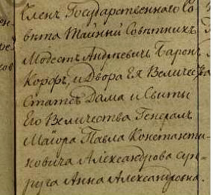 Членъ Государственнаго Со-
вѣта Тайный Совѣтникъ
Модестъ Андреевичъ Баронъ
Корфъ, и Двора Ея Величества
Статсъ Дама и Свиты
Его Величества Генералъ
Маіора Павла Константи-
новича Александрова суп-
руга Анна Александровна.